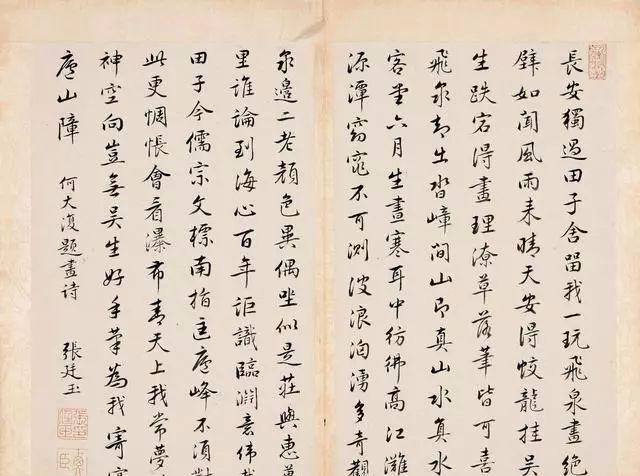 長安獨過田子舍留我一玩飛泉畫絕
壁如聞風雨来晴天安得蛟龍挂吳
生跌宕得畫理潦草落筆皆可喜
飛泉却出沓嶂間山即真山水真水
客堂六月生晝寒耳中彷彿高江灘
源潭窈窕不可測波浪洶湧多奇觀
泉邊二老顏色異偶坐似是莊與惠萬
里誰論到海心百年詎識臨淵意偉哉
田子今儒宗文標南指匡廬峰不須對
此更惆悵會看瀑布青天上我常夢
神空向豈無吳生好手筆為我寄
廬山障 何大復題畫詩 張廷玉